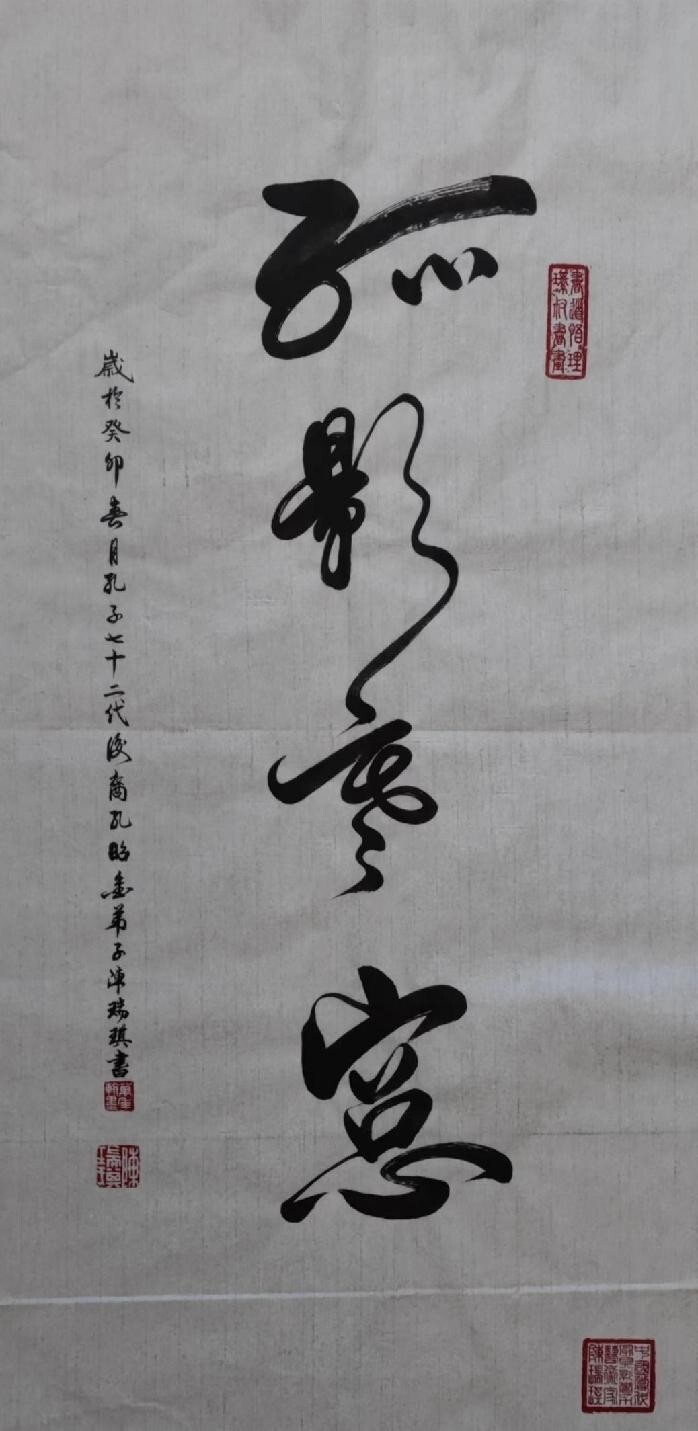 孤影寒窓
歳於癸卯春月孔子七十二代後裔孔昭金弟子陳瑞琪書